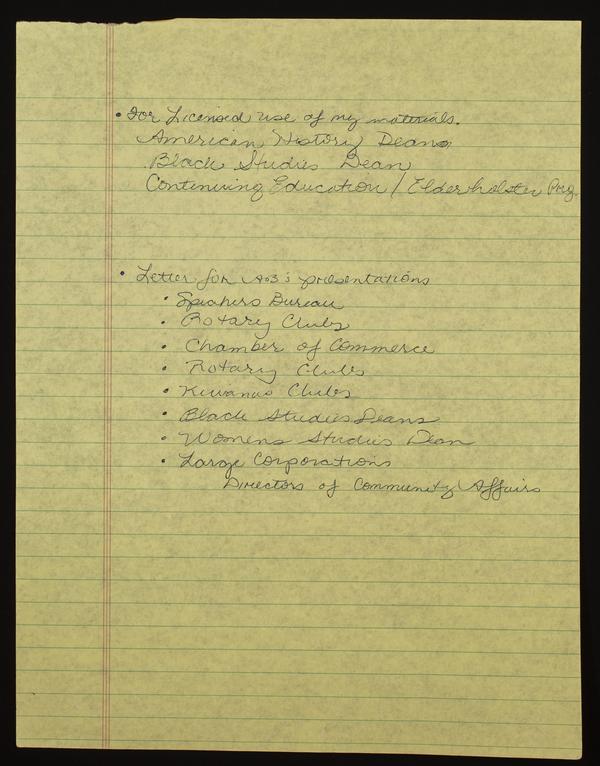 • For Licensed use of my materials.
American History Deans
Black Studies Dean
Continuing Education / Elderholster Prog
• Letter for A+B's presentations
• Speakers Bureau
• Rotary Clubs
• Chamber of Commerce
• Rotary Clubs
• Kiwanas Clubs
• Black Studies Deans
• Womens Studies Dean
• Large Corporations
Directors of Community Affairs